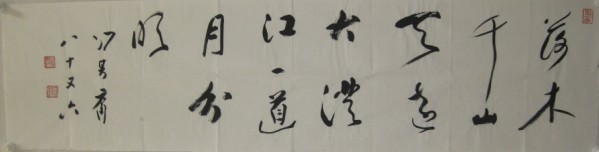 落木
千山
天遠
大澄
江一道
月分
明
冯其庸
八十又六